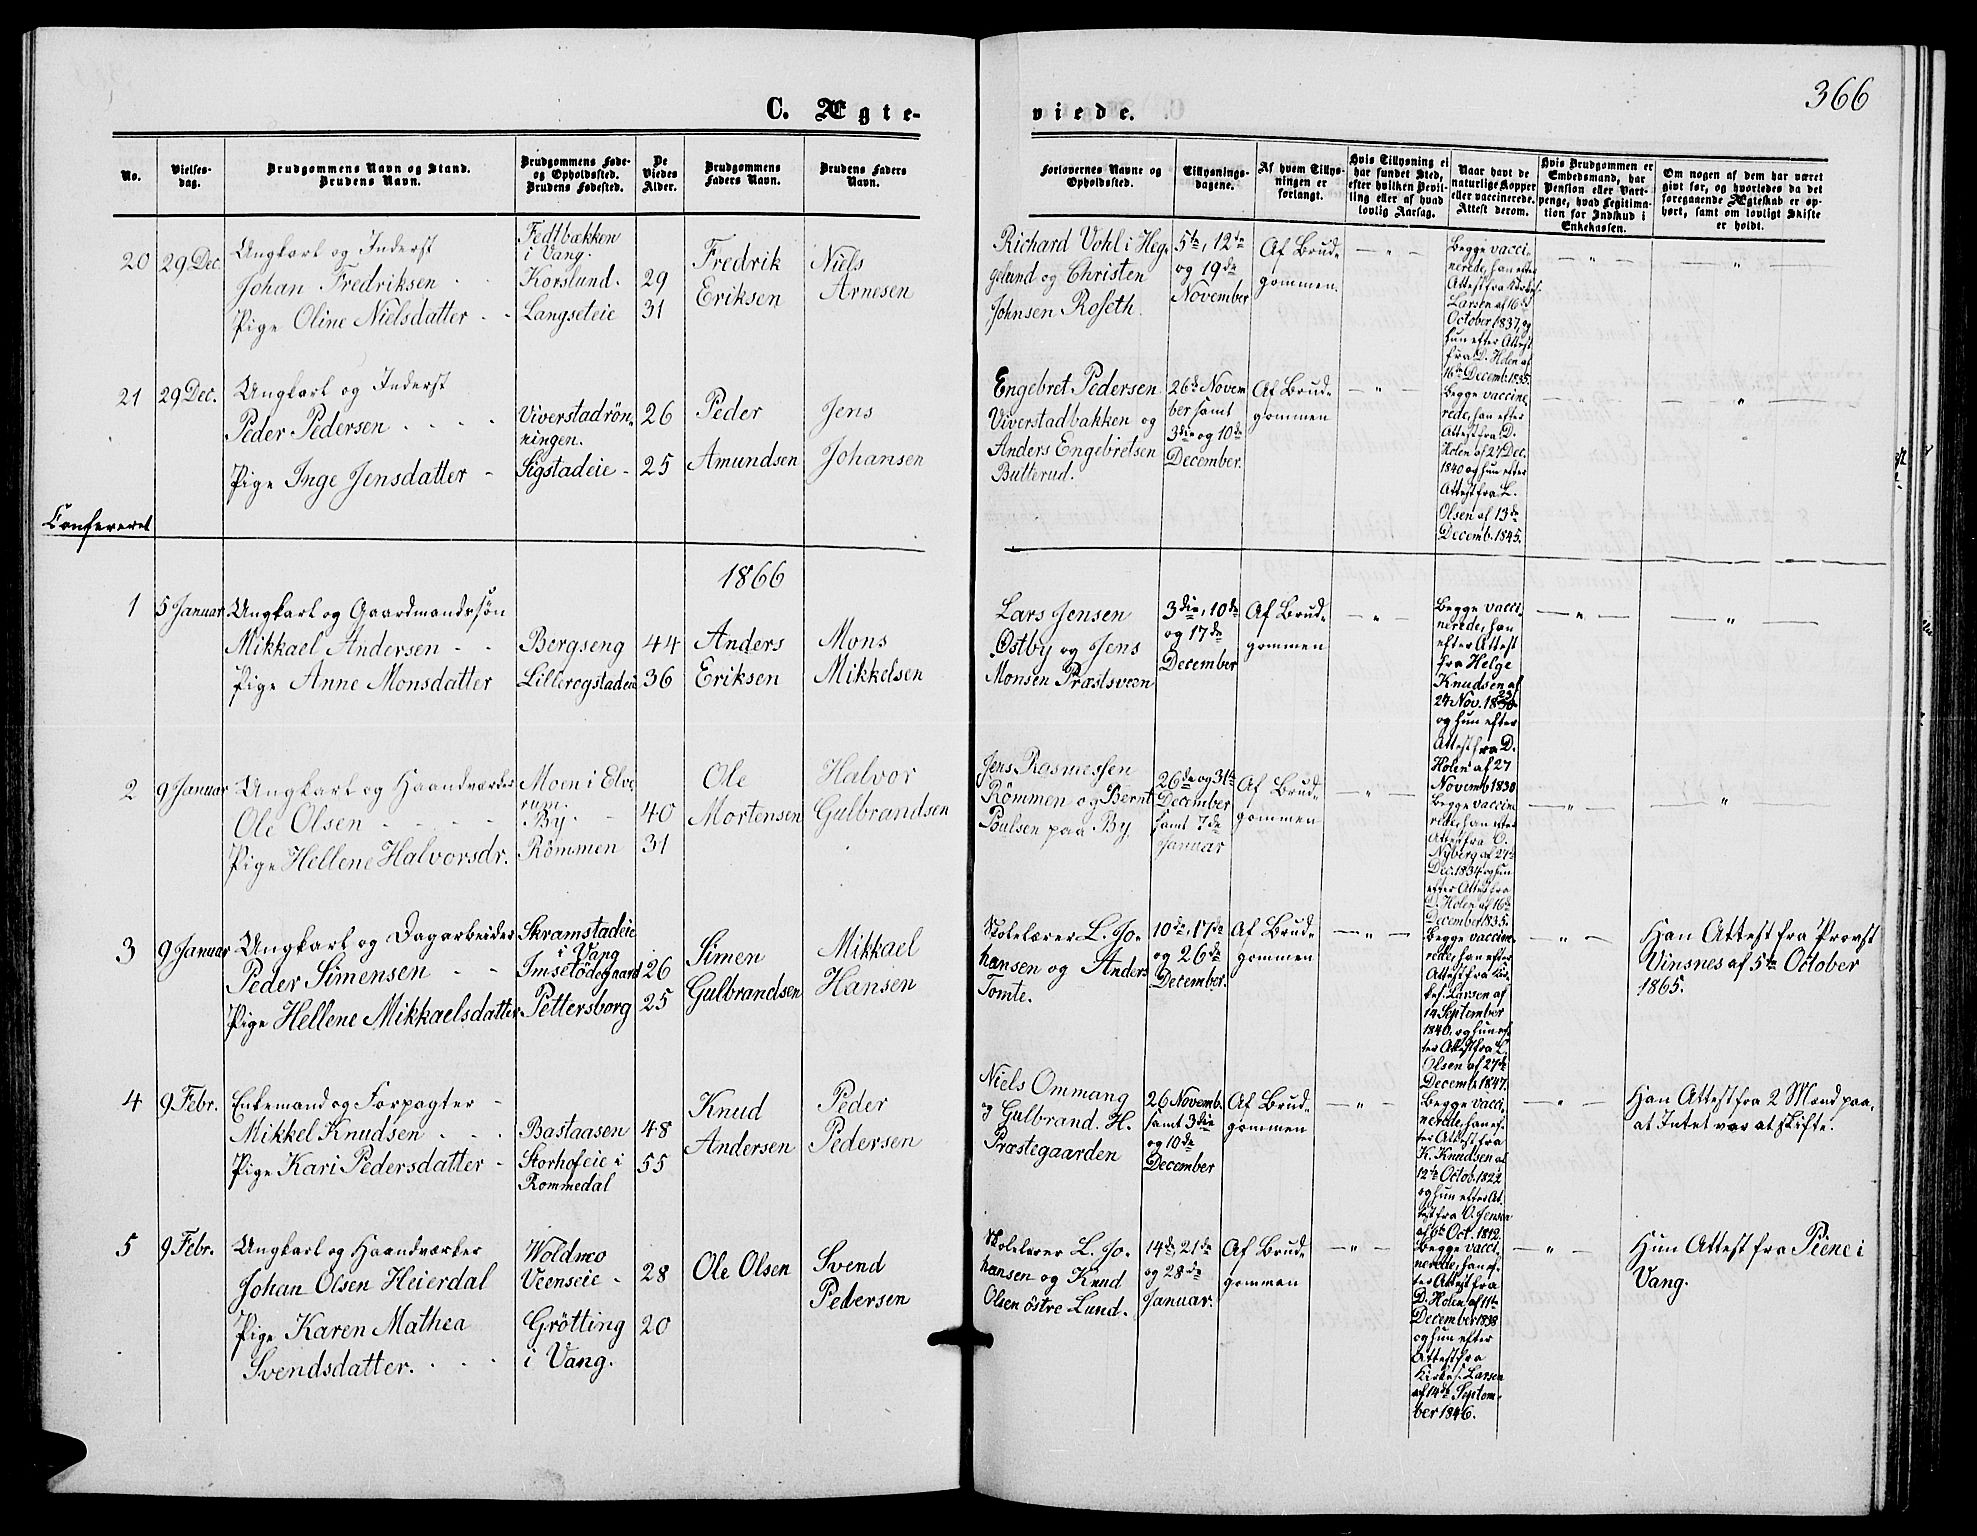 366
C. Ægte-
viede.
No.
Vielses-
dag.
Brudgommens Navn og Stand.
Brudens Navn.
Brudgommens Føde-
og Opholdssted.
Brudens Fødested.
De
Viedes
Alder.
Brudgommens
Faders Navn.
Brudens Faders
Navn.
Forlovernes Navne og
Opholdssted.
Tillysnings-
dagene.
Af hvem Tillys-
ningen er
forlangt.
Hvis Tillysning ei
har fundet Sted,
efter hvilken Bevil-
ling eller af hvad
lovlig Aarsag.
Naar havt de
naturlige Kopper
eller vaccinerede.
Attest derom.
Hvis Brudgommen er
Embedsmand, har
Pension eller Vart-
penge, hvad Legitima-
tion for Indskud i
Enkekassen.
Om nogen af dem har været
gift før, og hvorledes da det
foregaaende Ægteskab er op-
hørt, samt om lovligt Skifte
er holdt.
20
29 Dec.
Ungkarl og Inderst
Johan Fredriksen
Pige Oline Nielsdatter
Fedtbækken
i Vang.
Korslund.
Langseteie
29
31
Fredrik
Eriksen
Niels
Arnesen
Richard Vohl i Heg-
gelund og Christen
Johnsen Roseth.
5te, 12te
og 19de
November
Af Brud-
gommen.
Begge vacci-
nerede, han efter
Attest fra Kirkes.
Larsen af 16de
October 1837, og
hun efter Attest
fra D. Holen af
16de Decemb. 1835.
21
29 Dec.
Ungkarl og Inderst
Peder Pedersen
Pige Inge Jensdatter
Viverstadrön-
ningen.
Sigstadeie
26
25
Peder
Amundsen
Jens
Johansen
Engebret Pedersen
Viverstadbakken og
Anders Engebretsen
Butterud.
26de Novem
ber samt
3die og 10de
December.
Af Brud-
gommen
Begge vaccine-
rede, han efter
Attest fra D.
Holen af 27 Dec.
1840 og hun efter
Attest fra L.
Olsen af 13de
Decemb. 1845.
Confereret
1866
1
5 Januar
Ungkarl og Gaardmandssön
Mikkael Andersen
Pige Anne Monsdatter
Bergseng
Lillerogstadeie
44
36
Anders
Eriksen
Mons
Mikkelsen
Lars Jensen
Østby og Jens
Monsen Præstsveen
3die, 10de
og 17de
December
Af Brud-
gommen
Begge vacci-
nerede, han
efter Attest
fra Helge
Knudsen af
Nov.
og hun efter
Attest fra D.
Holen af 27
Novemb 1830
2
9 Januar
Ungkarl og Haandværker
Ole Olsen
Pige Hellene Halvorsdr.
Moen i Elve
rum.
By.
Römmen
40
31
Ole
Mortensen
Halvor
Gulbrandsen
Jens Rasmussen
Römmen og Bernt
Poulsen paa By.
26de og 31te
December
samt 7de
Januar
Af Brud-
gommen
Begge vaccine
rede, han efter
Attest fra O.
Nyberg af 27de
Dec. 1834 og hun
efter Attest fra
D. Holen af 16de
December 1835.
3
9 Januar
Ungkarl og Dagarbeider
Peder Simensen
Pige Hellene Mikkaelsdatter
Skramstadeie
i Vang
Imsetödegaard
Pettersborg
26
25
Simen
Gulbrandsen
Mikkael
Hansen
Skolelærer L. Jo-
hansen og Anders
Tomte.
10de, 17de
og 26de
December.
Af Brud-
gommen
Begge vaccine-
rede, han efter
Attest fra Kir-
kes. Larsen af
14 September
1846. og hun ef-
ter Attest fra L
Olsen af 27de
Decemb. 1847.
Han Attest fra Provst
Vinsnes af 5te October
1865.
4
9 Febr.
Enkemand og Forpagter
Mikkel Knudsen
Pige Kari Pedersdatter
Bastaasen
Storhofeie i
Rommedal
48
55
Knud
Andersen
Peder
Pedersen
Niels Ommang
og Gulbrand. H.
Præstegaarden
26 Novemb.
samt 3die
og 10de
December
Af Brud-
gommen
Begge vacci-
nerede, han ef-
ter Attest fra
K. Knudsen af
12te Octob. 1822
og hun efter At-
test fra O. Jensen
af 6te Oct. 1812.
Han Attest fra 2 Mænd paa,
at Intet var at skifte.
5
9 Febr.
Ungkarl og Haandværker
Johan Olsen Heierdal
Pige Karen Mathea
Svendsdatter.
Woldmo
Veenseie
Grötting
i Vang.
28
20
Ole Olsen
Svend
Pedersen
Skolelærer L. Jo-
hansen og Knud
Olsen östre Lund.
14de, 21de
og 28de
Januar.
Af Brud-
gommen
Begge vacci-
nerede, han ef-
ter Attest fra
D. Holen af 11te
December 1838
og hun efter
Attest fra
Kirkes. Larsen
af 14de Septem-
ber 1846.
Hun Attest fra Piene i
Vang.